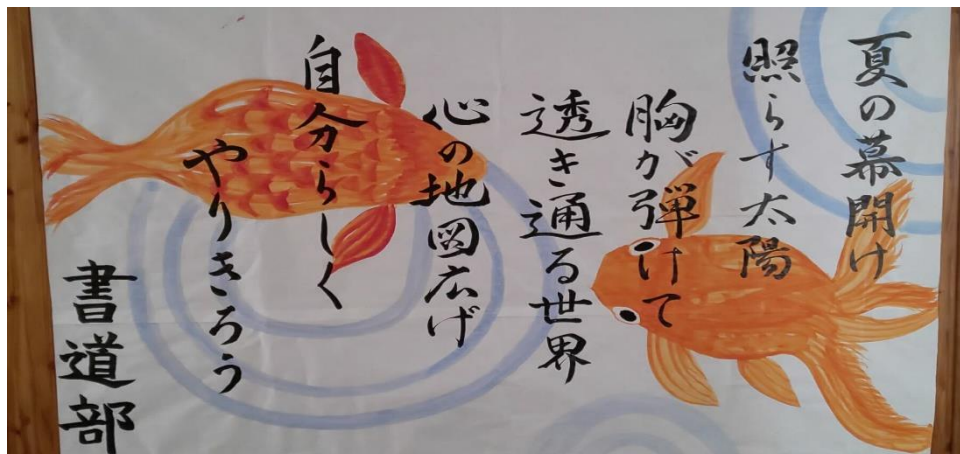 夏の幕開け
照らす太陽
胸が弾けて
透き通る世界
心の地図広げ
自分らしく
やりきろう
書道部